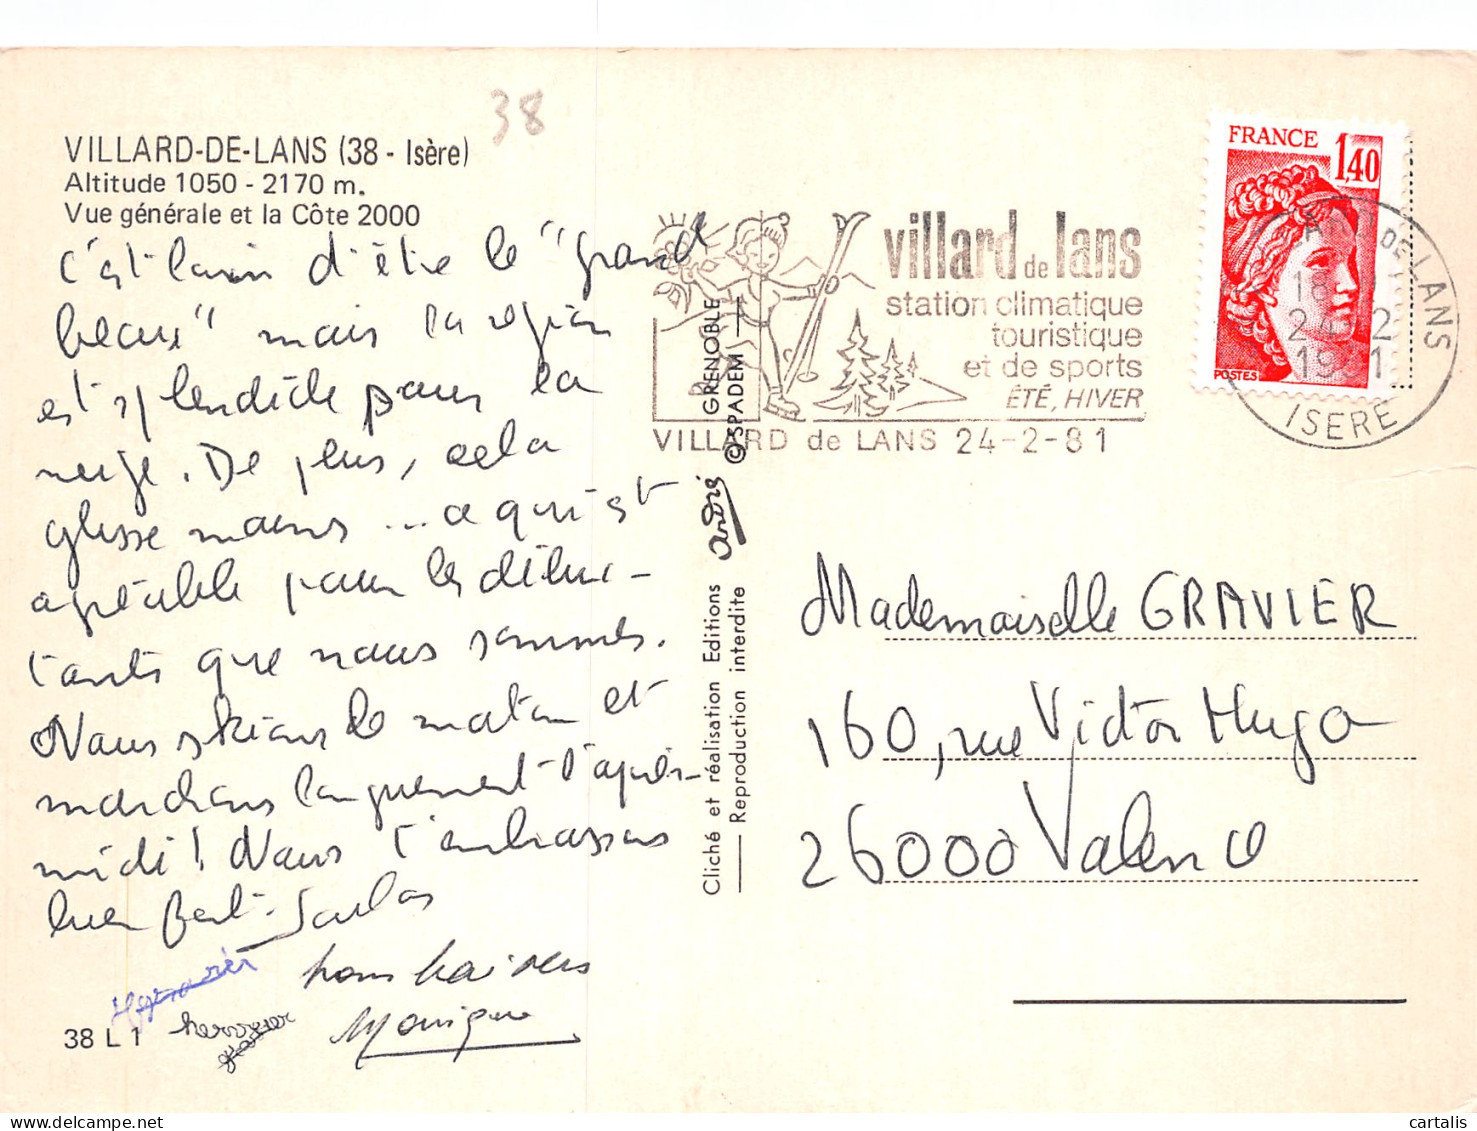 38
VILLARD-DE-LANS (38 - Isère)
Altitude 1050 - 2170 m.
Vue générale et la Côte 2000
C'est loin d'être le "grand
beau" mais la région
est splendide pour la
neige. De plus, cela
glisse moins ... ce qui est
agréable pour les débu-
tants que nous sommes.
Nous skions le matin et
marchons longuement l'après-
midi ! Nous t'embrassons
bien fort.
bons baisers
Monique
38 L 1
Cliché et réalisation Editions andris GRENOBLE
Reproduction interdite © SPADEM
villard de lans
station climatique
touristique
et de sports
ÉTÉ, HIVER
VILLARD de LANS 24-2-81
FRANCE
1,40
POSTES
VILLARD DE LANS
18
24-2
1981
ISERE
Mademoiselle GRAVIER
160, rue Victor Hugo
26000 Valence
cartalis
www.delcampe.net